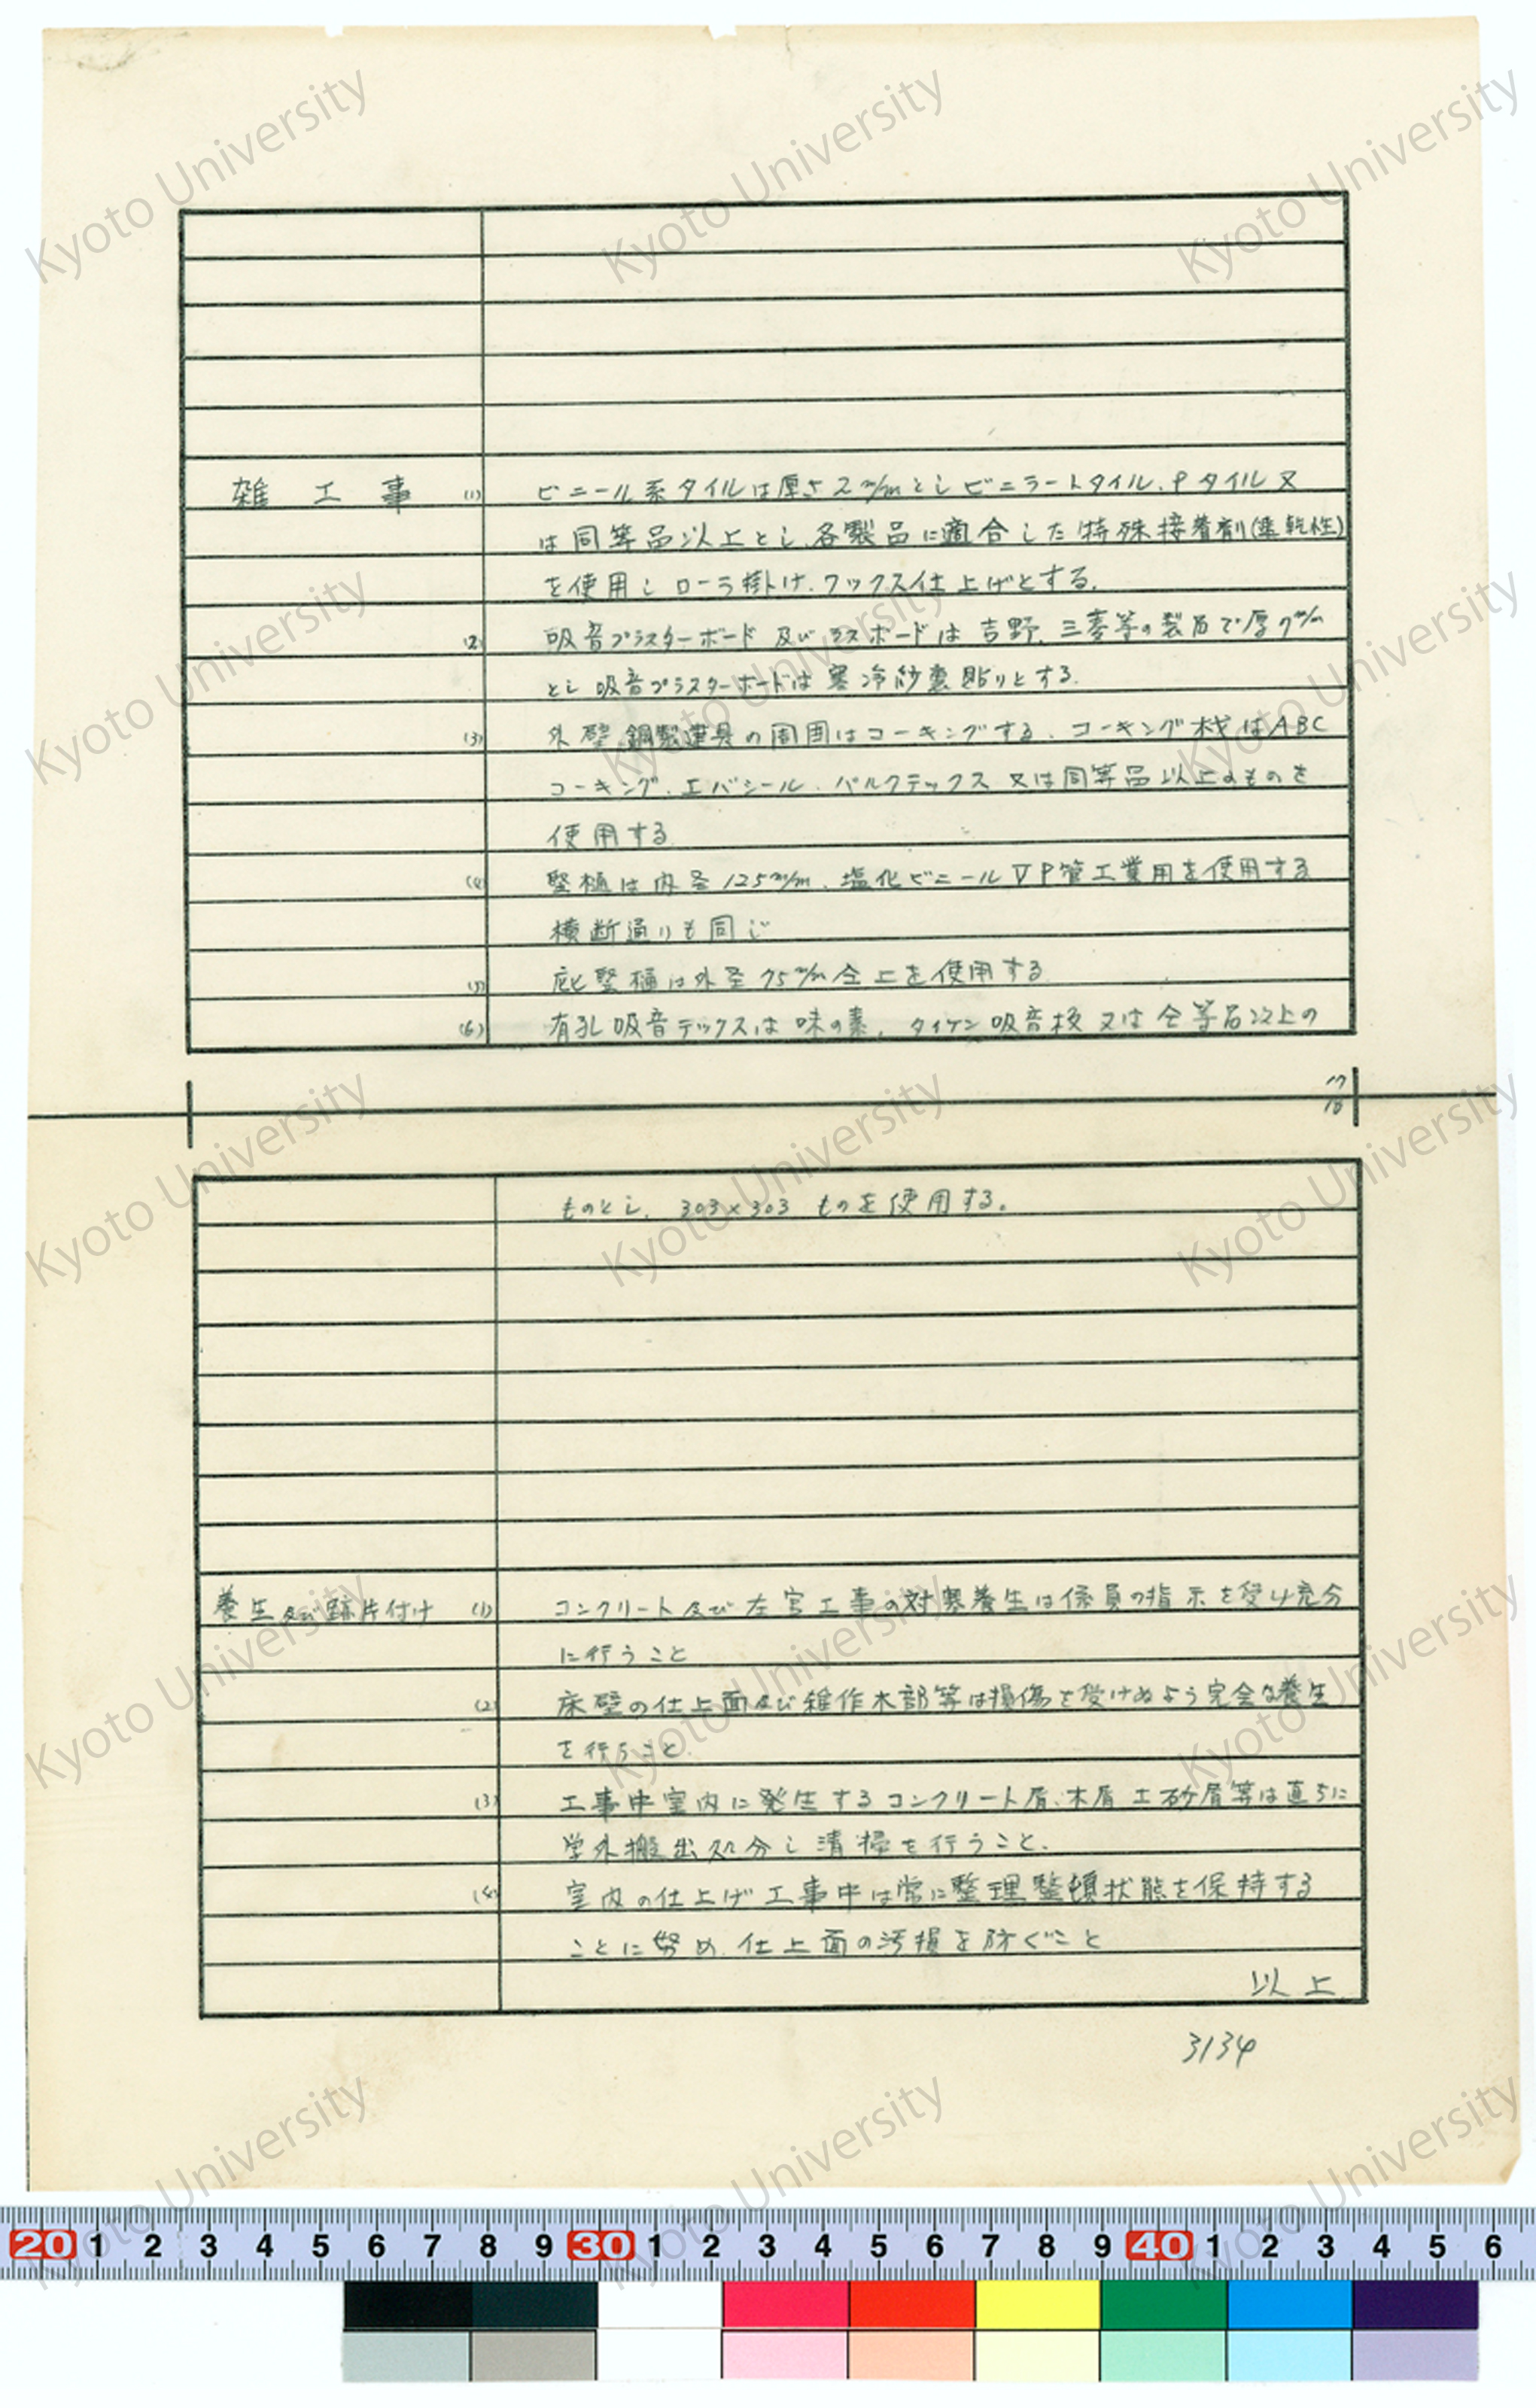 雑工事 (1) ビニール系タイルは厚さ2m/mとしビニラートタイル、Pタイル又
は同等品以上とし、各製品に適合した特殊接着剤(速乾性)
を使用しローラ掛け、ワックス仕上げとする。
(2) 吸音プラスターボード及びラスボードは吉野、三菱等の製品で厚7m/m
とし吸音プラスターボードは寒冷紗裏貼りとする。
(3) 外壁鋼製建具の周囲はコーキングする、コーキング材はABC
コーキング、エバシール、バルクテックス又は同等品以上のものを
使用する
(4) 竪樋は内径125m/m、塩化ビニールVP管工業用を使用する
横断通りも同じ
(5) 庇竪樋は外径75m/m仝上を使用する
(6) 有孔吸音テックスは味の素、タイケン吸音板又は仝等品以上の
17
18
ものとし、303×303ものを使用する。
養生及び跡片付け (1) コンクリート及び左官工事の対寒養生は係員の指示を受け充分
に行うこと
(2) 床壁の仕上面及び雑作木部等は損傷を受けぬよう完全な養生
を行うこと。
(3) 工事中室内に発生するコンクリート屑、木屑土砂屑等は直ちに
学外搬出処分し清掃を行うこと。
(4) 室内の仕上げ工事中は常に整理整頓状態を保持する
ことに努め、仕上面の汚損を防ぐこと
以上
3134
Kyoto University
20 1 2 3 4 5 6 7 8 9 30 1 2 3 4 5 6 7 8 9 40 1 2 3 4 5 6